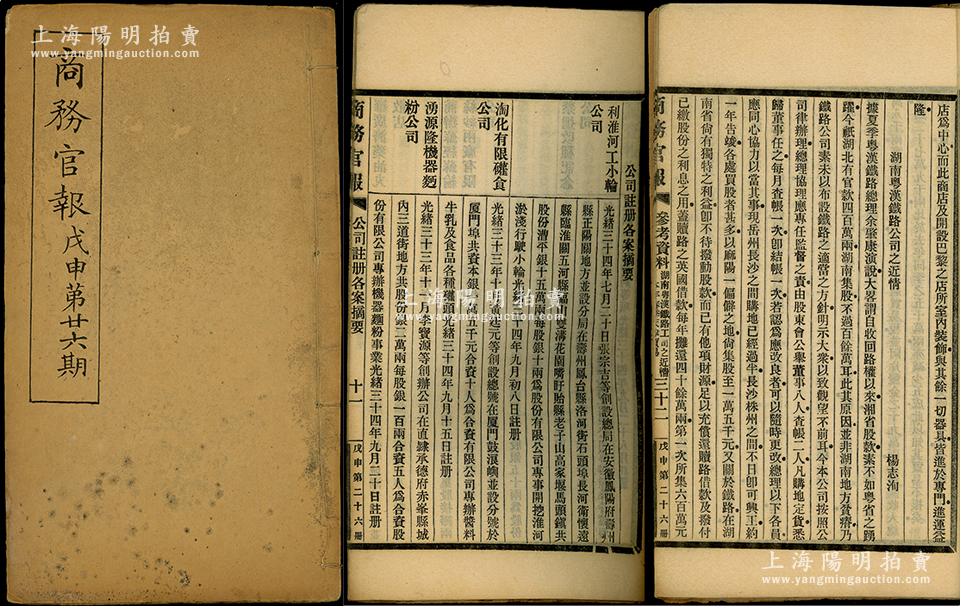 上海陽明拍賣
www.yangmingauction.com
商務官報戊申第廿六期
上海陽明拍賣
www.yangmingauction.com
公司註册各案摘要
利淮河工小輪
公司
光緒三十四年七月二十日張宗吉等創設總局在安徽鳳陽府壽州
縣正陽關地方並設分局在壽州鳳台縣洛河街石頭埠長河衛懷遠
縣臨淮關五河縣
雙溝花園嘴盱眙縣老子山高家堰馬頭鎮共
股份漕平銀十五萬兩每股銀十兩爲股份有限公司專事開挖淮河
淤淺行駛小輪光緒三十四年九月初八日註册
淘化有限罐食
公司
光緒三十三年十
黃廷元等創設總號在厦門鼓浪嶼並設分號於
厦門埠共資本銀
萬五千元合資十人爲合資有限公司專辦醬料
牛乳及食品各種罐頭光緒三十四年九月十五日註册
湧源隆機器麪
粉公司
光緒三十三年十一月李寶源等創辦公司在直隷承德府赤峯縣城
內三道街地方共股份銀二萬兩每股銀一百兩合資五人爲合資股
份有限公司專辦機器麵粉事業光緒三十四年九月二十日註册
商務官報
公司註册各案摘要
十一
戊申第二十六册
上海陽明拍賣
www.yangmingauction.com
店爲中心而此商店及開設巴黎之店所室內裝飾與其餘一切器具皆進於專門進運益
隆
湖南粵漢鐵路公司之近情
楊志洵
據夏季粵漢鐵路總理余肇康演說大畧謂自收回路權以來湘省股款素不如粵省之踴
躍今祇湖北有官款四百萬兩湖南集股不過百餘萬耳此其原因並非湖南地方貧瘠乃
鐵路公司素未以布設鐵路之適當之方針明示大衆以致觀望不前耳今本公司按照公
司律辦理總理協理應專任監督之責由股東會公舉董事八人查帳一人凡購地定貨悉
歸董事任之每月查帳一次卽結帳一次若認爲應改良者可以隨時更改總理以下各員
應同心協力以當其事現岳州長沙之間購地已經過半長沙株州之間不日卽可興工約
一年告竣各處買股者甚多以麻陽一偏僻之地尙集股至一萬五千元又關於鐵路在湖
南省尙有獨特之利益卽不待撥動股款而已有他項財源足以充償還贖路借款及撥付
已繳股份之利息之用蓋贖路之英國借款每年攤還四十餘萬兩第一次所集六百萬元
商務官報
參考資料
湖南粵漢鐵路公司之近情
三十二
戊申第二十六册
上海陽明拍賣
www.yangmingauction.com
上海陽明拍賣
www.yangmingauction.com